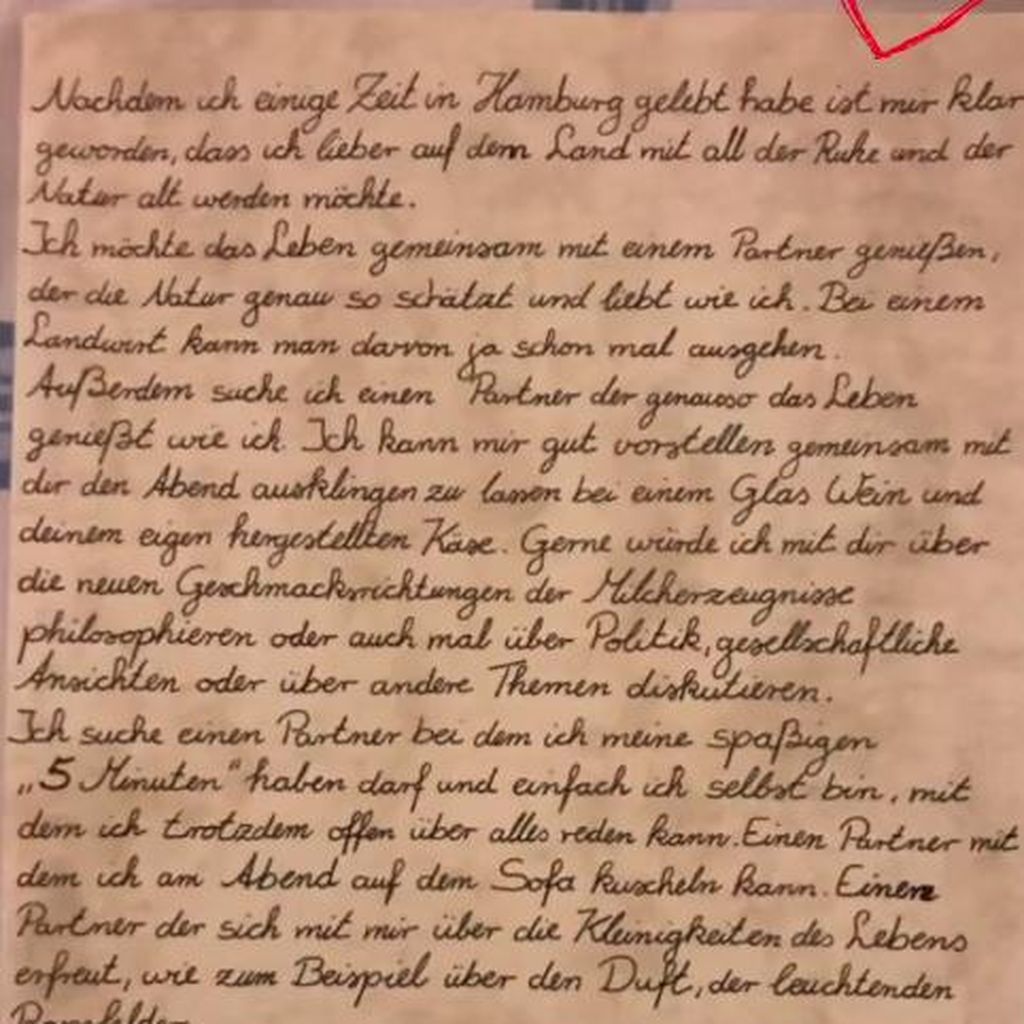 Nachdem ich einige Zeit in Hamburg gelebt habe ist mir klar
geworden, dass ich lieber auf dem Land mit all der Ruhe und der
Natur alt werden möchte.
Ich möchte das Leben gemeinsam mit einem Partner genießen,
der die Natur genau so schätzt und liebt wie ich. Bei einem
Landwirt kann man davon ja schon mal ausgehen.
Außerdem suche ich einen Partner der genauso das Leben
genießt wie ich. Ich kann mir gut vorstellen gemeinsam mit
dir den Abend ausklingen zu lassen bei einem Glas Wein und
deinem eigen hergestellten Käse. Gerne würde ich mit dir über
die neuen Geschmacksrichtungen der Milcherzeugnisse
philosophieren oder auch mal über Politik, gesellschaftliche
Ansichten oder über andere Themen diskutieren.
Ich suche einen Partner bei dem ich meine spaßigen
„5 Minuten" haben darf und einfach ich selbst bin, mit
dem ich trotzdem offen über alles reden kann. Einen Partner mit
dem ich am Abend auf dem Sofa kuscheln kann. Einen
Partner der sich mit mir über die Kleinigkeiten des Lebens
erfreut, wie zum Beispiel über den Duft, der leuchtenden